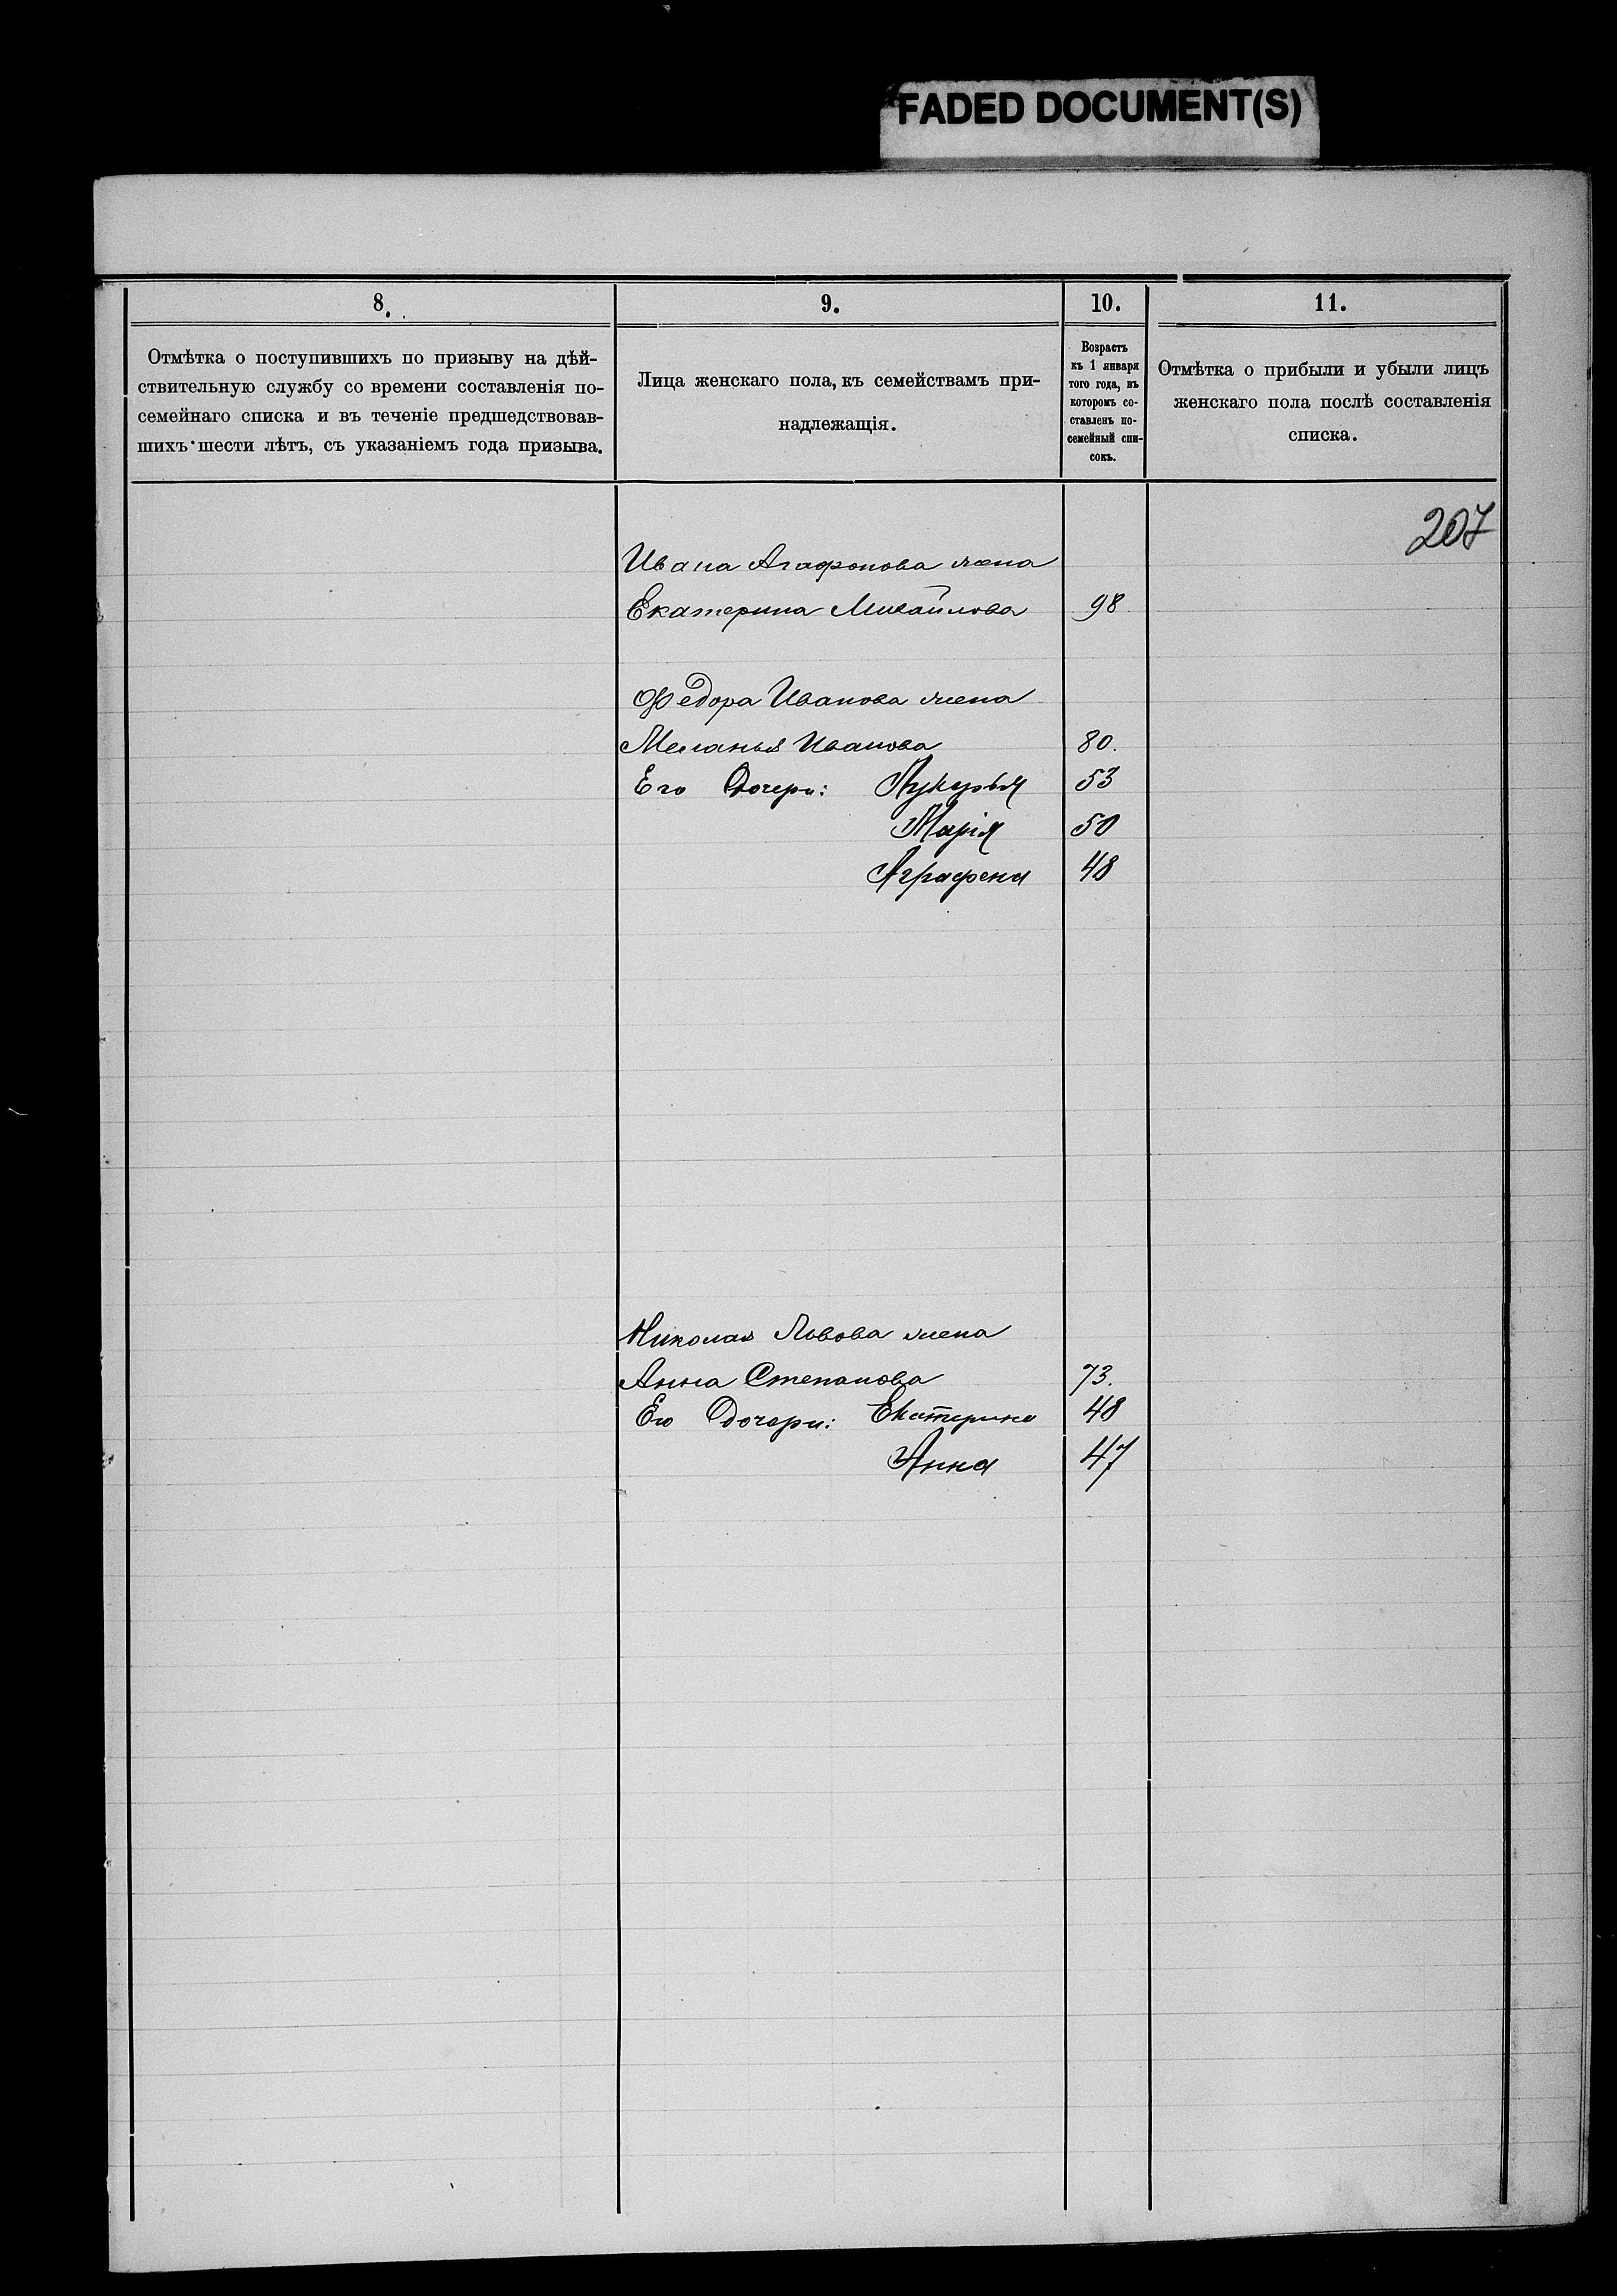 FADED DOCUMENT(S)
8.
9.
10.
11.
Отмѣтка о поступившихъ по призыву на дѣй-
ствительную службу со времени составленія по-
семейнаго списка и въ теченіе предшедствовав-
шихъ шести лѣтъ, съ указаніемъ года призыва.
Лица женскаго пола, къ семействамъ при-
надлежащія.
Возрастъ
къ 1 января
того года, въ
которомъ со-
ставленъ по-
семейный спи-
сокъ.
Отмѣтка о прибыли и убыли лицъ
женскаго пола послѣ составленія
списка.
207
Ивана Агафонова жена
Екатерина Михайлова 98
Федора Иванова жена
Меланья Иванова 80.
Его Дочери: Лукерья 53
Марія 50
Аграфена 48
Николая Львова жена
Анна Степанова 73.
Его Дочери: Екатерина 48
Анна 47